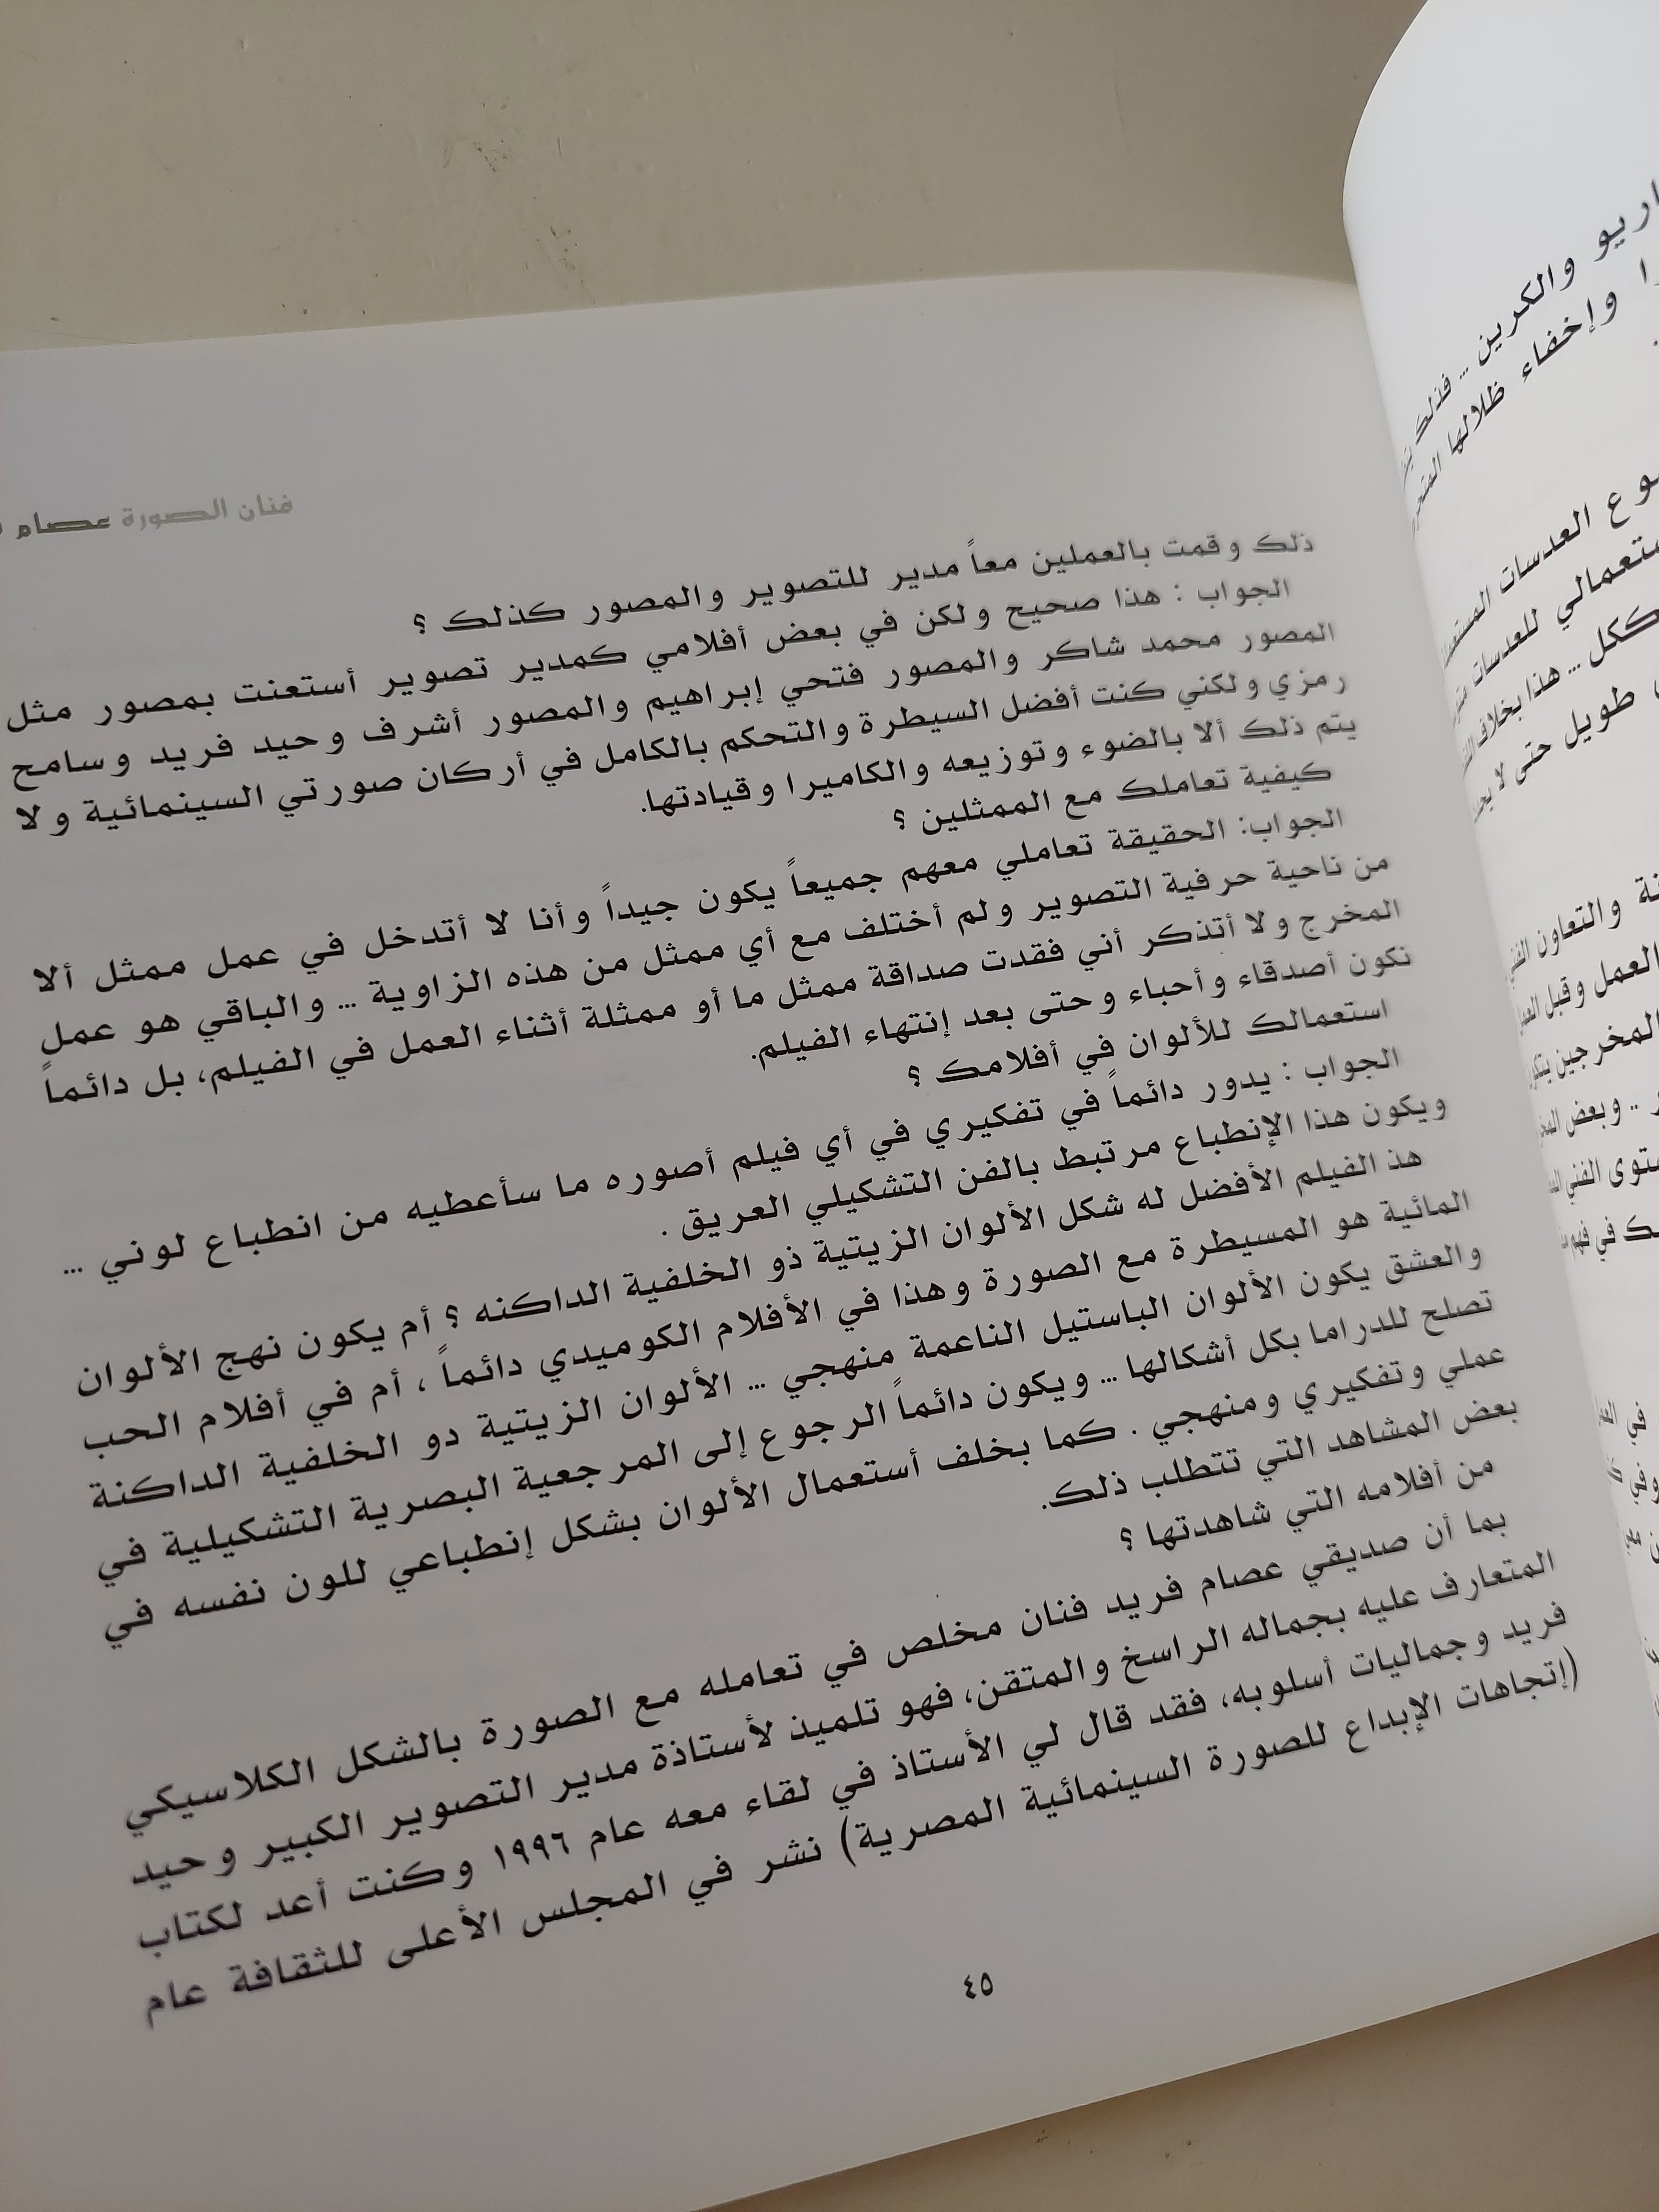 فنان الصورة عصام
ذلك وقمت بالعملين معاً مدير للتصوير والمصور كذلك ؟
الجواب : هذا صحيح ولكن في بعض أفلامي كمدير تصوير أستعنت بمصور مثل
المصور محمد شاكر والمصور فتحي إبراهيم والمصور أشرف وحيد فريد وسامح
رمزي ولكني كنت أفضل السيطرة والتحكم بالكامل في أركان صورتي السينمائية ولا
يتم ذلك ألا بالضوء وتوزيعه والكاميرا وقيادتها.
كيفية تعاملك مع الممثلين ؟
الجواب: الحقيقة تعاملي معهم جميعاً يكون جيداً وأنا لا أتدخل في عمل ممثل ألا
من ناحية حرفية التصوير ولم أختلف مع أي ممثل من هذه الزاوية ... والباقي هو عمل
المخرج ولا أتذكر أني فقدت صداقة ممثل ما أو ممثلة أثناء العمل في الفيلم، بل دائماً
نكون أصدقاء وأحباء وحتى بعد إنتهاء الفيلم.
استعمالك للألوان في أفلامك ؟
الجواب : يدور دائماً في تفكيري في أي فيلم أصوره ما سأعطيه من انطباع لوني ...
ويكون هذا الإنطباع مرتبط بالفن التشكيلي العريق .
هذ الفيلم الأفضل له شكل الألوان الزيتية ذو الخلفية الداكنه ؟ أم يكون نهج الألوان
المائية هو المسيطرة مع الصورة وهذا في الأفلام الكوميدي دائماً ، أم في أفلام الحب
والعشق يكون الألوان الباستيل الناعمة منهجي ... الألوان الزيتية دو الخلفية الداكنة
تصلح للدراما بكل أشكالها ... ويكون دائماً الرجوع إلى المرجعية البصرية التشكيلية في
عملي وتفكيري ومنهجي . كما بخلف أستعمال الألوان بشكل إنطباعي للون نفسه في
بعض المشاهد التي تتطلب ذلك.
من أفلامه التي شاهدتها ؟
بما أن صديقي عصام فريد فنان مخلص في تعامله مع الصورة بالشكل الكلاسيكي
المتعارف عليه بجماله الراسخ والمتقن، فهو تلميذ لأستاذة مدير التصوير الكبير وحيد
فريد وجماليات أسلوبه، فقد قال لي الأستاذ في لقاء معه عام ١٩٩٦ وكنت أعد لكتاب
(إتجاهات الإبداع للصورة السينمائية المصرية) نشر في المجلس الأعلى للثقافة عام
٤٥
والكرين ... فذلك
وإخفاء ظلالها
العدسات
للعدسات
ككل ... هذا بخلاف
طويل حتى لا
والتعاون الفني
العمل وقبل
المخرجين
.. وبعض
الفني
في فهم